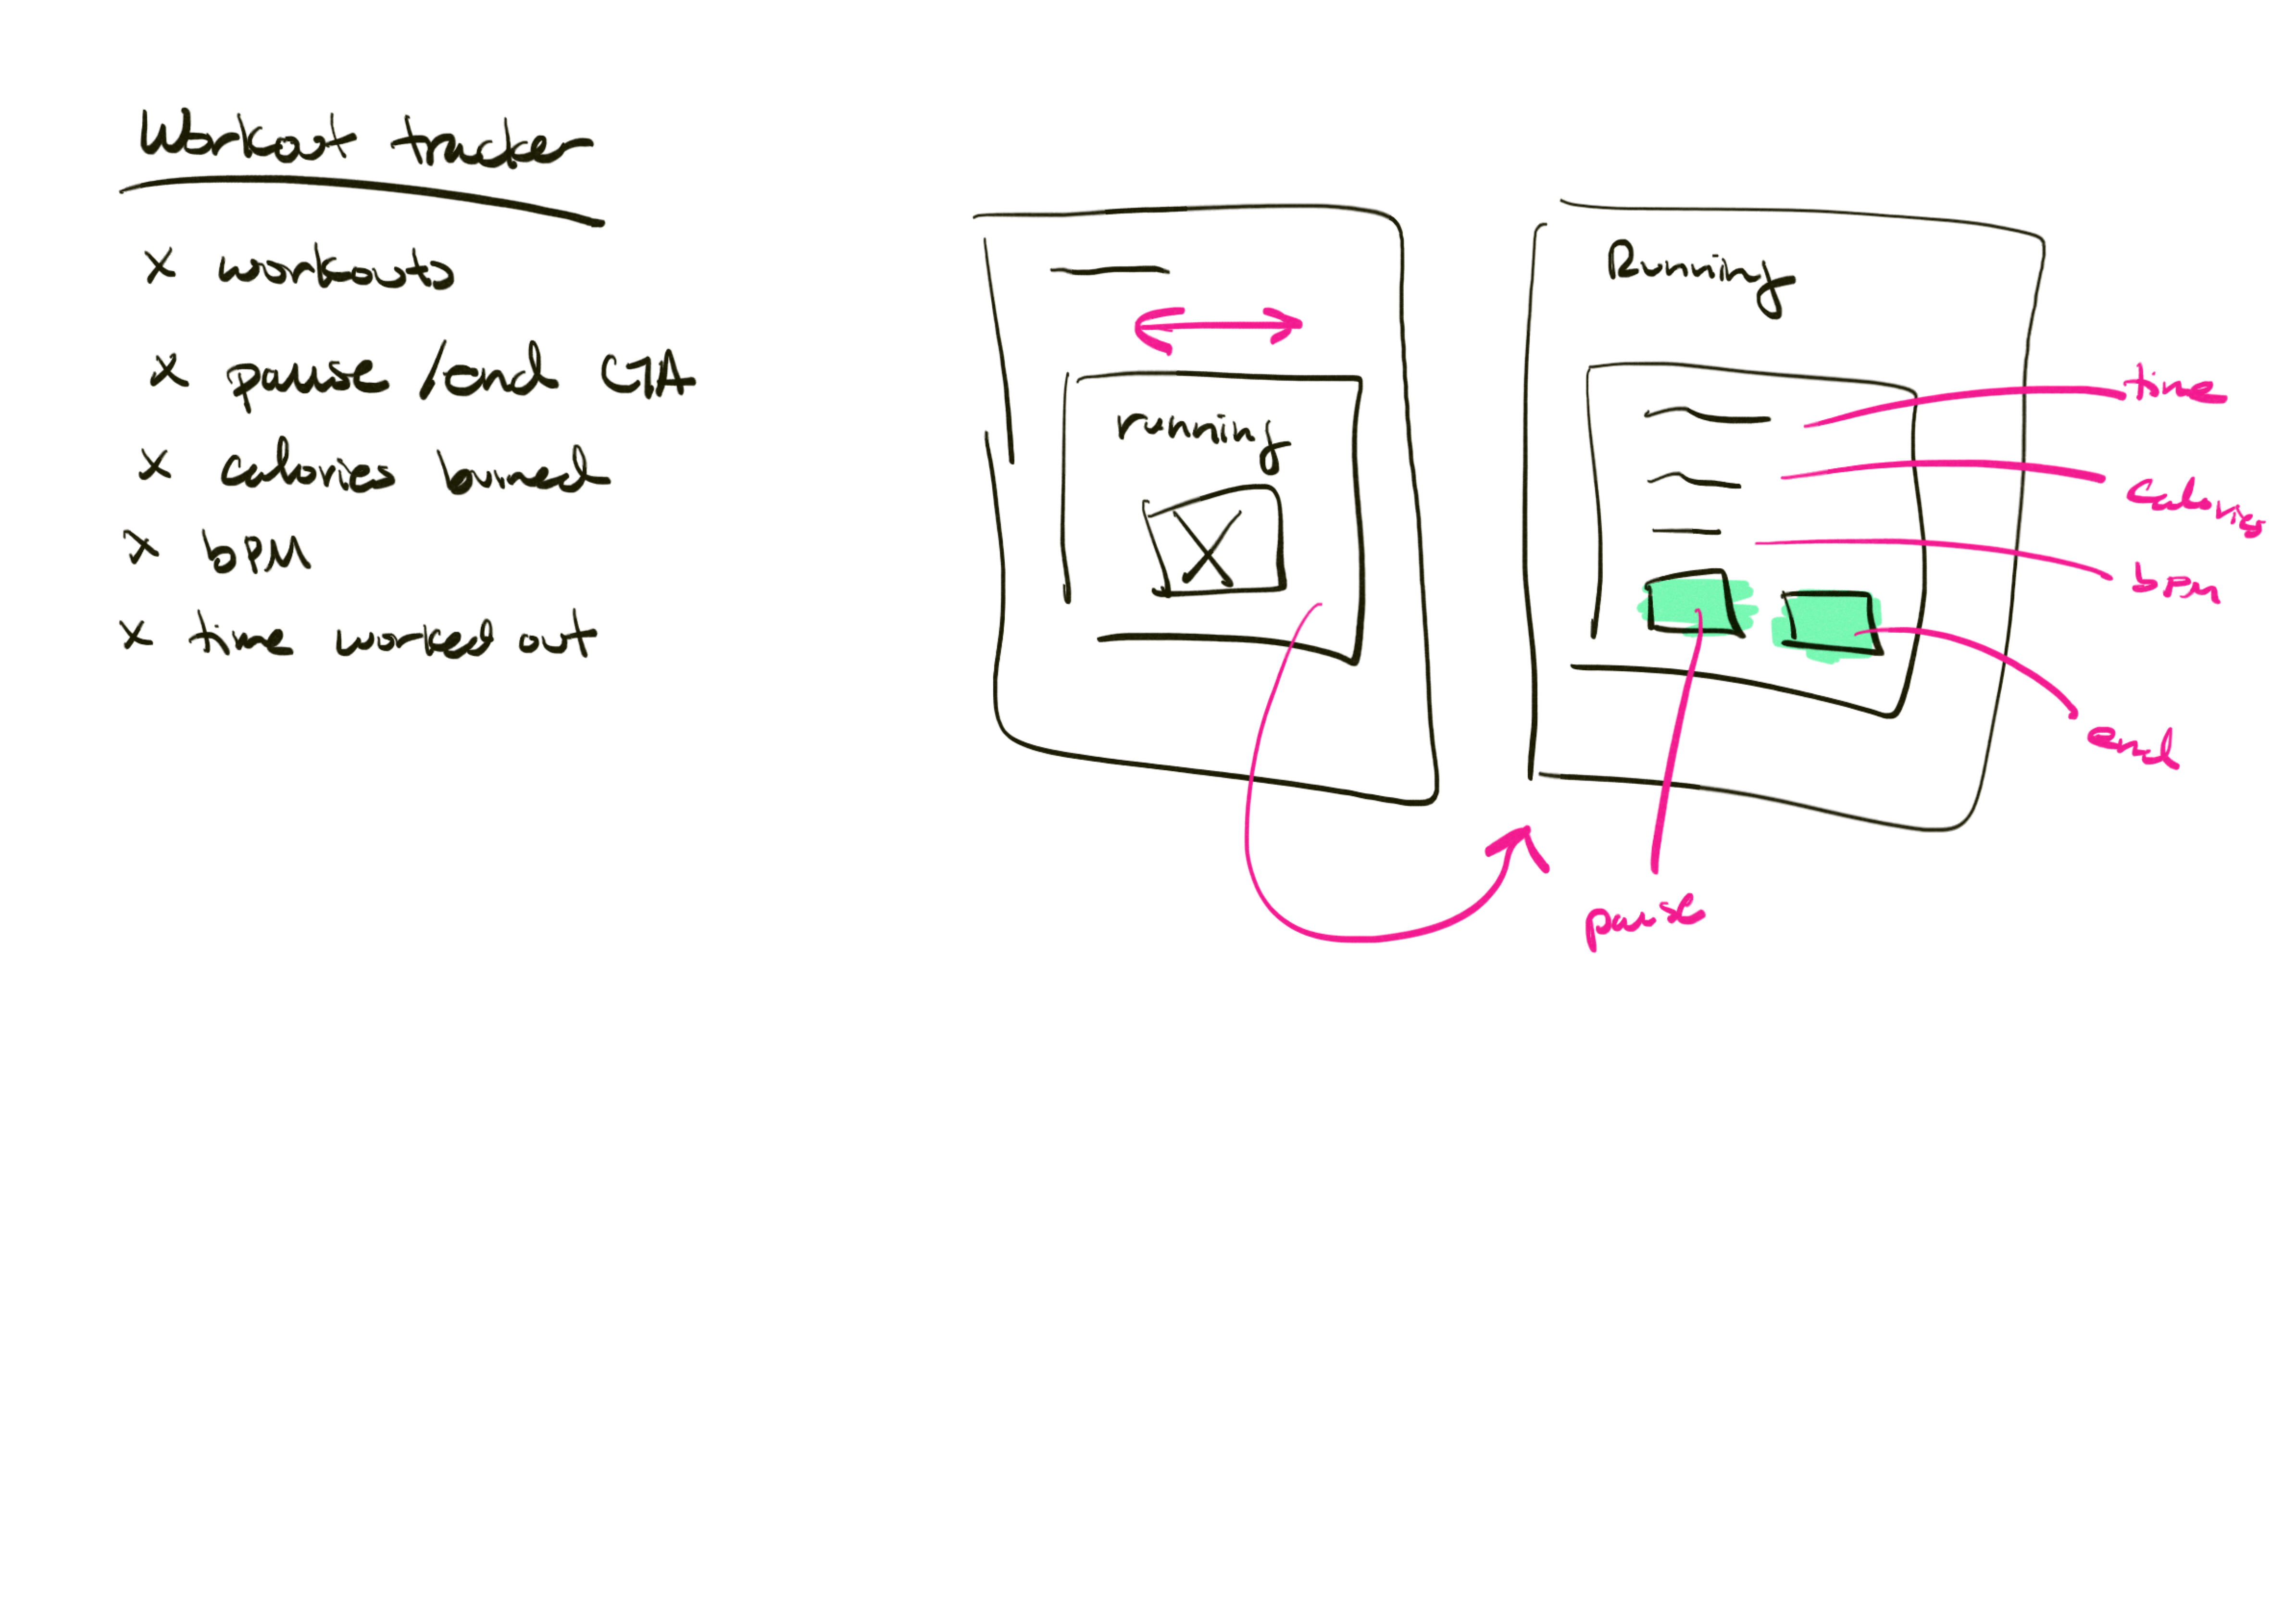 Workout tracker
x workouts
x pause / end CTA
x calories burned
x bPM
x time worked out
running
Running
time
calories
bPM
end
pause